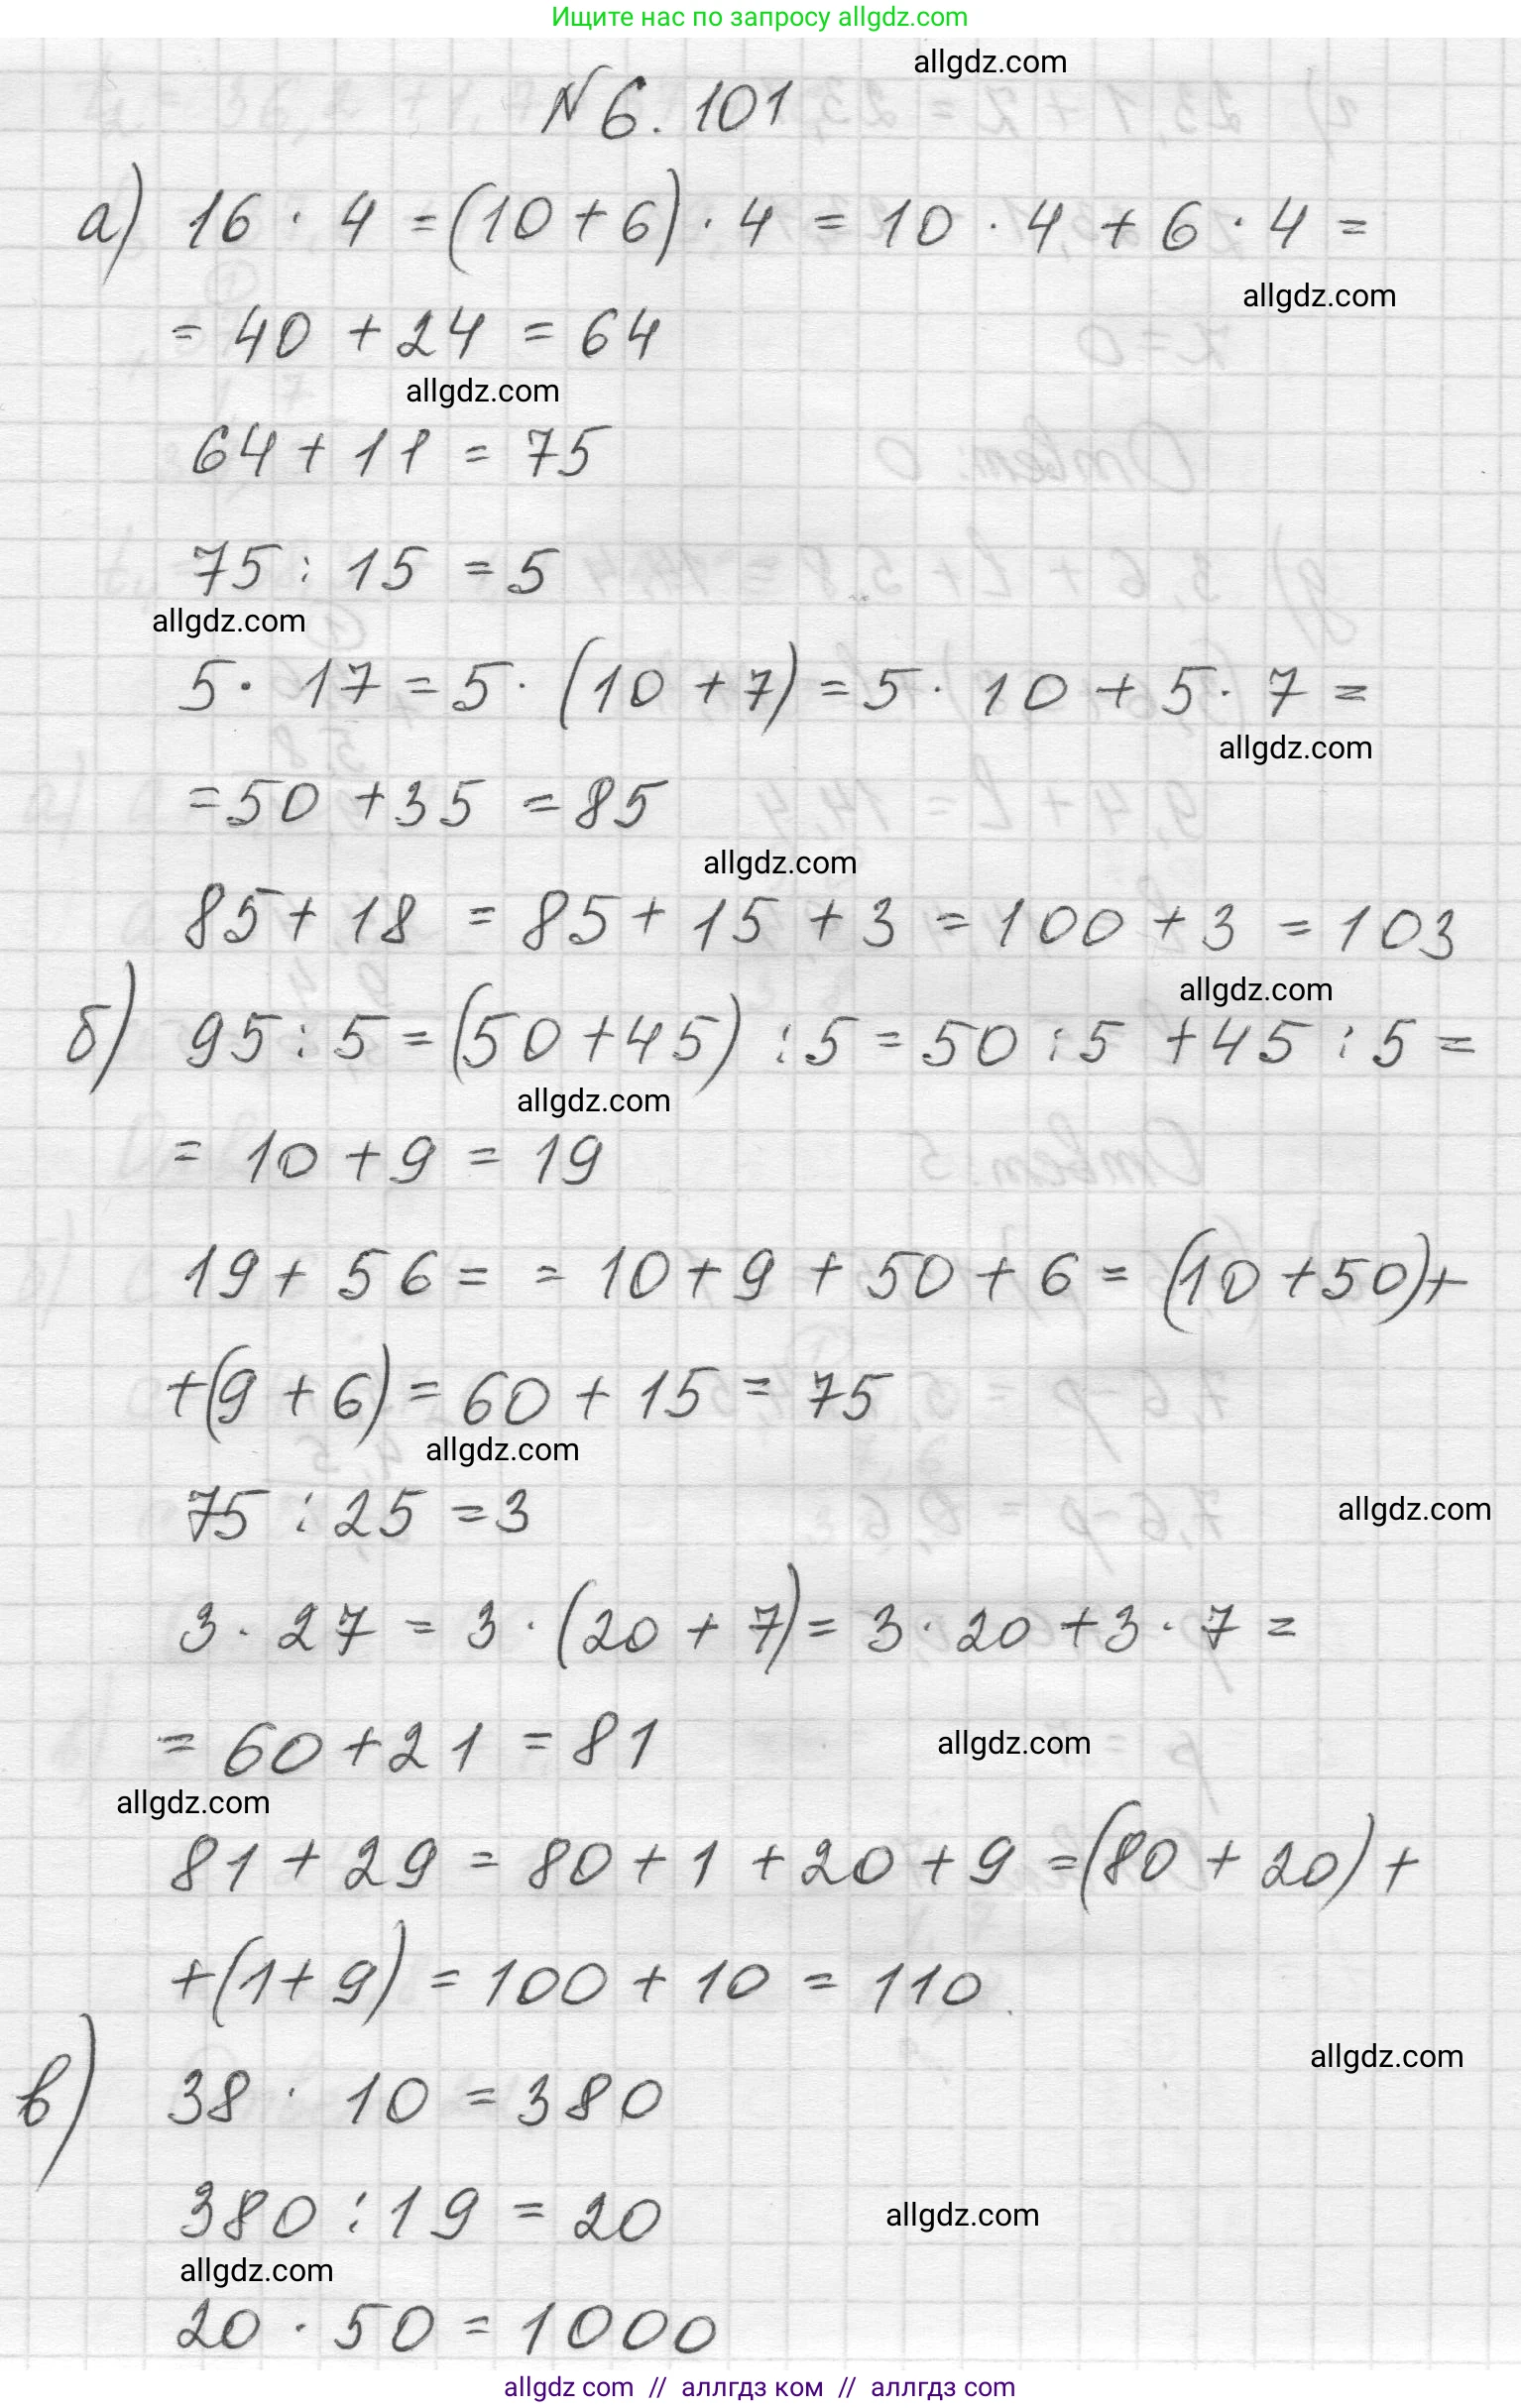 Ищите нас по запросу allgdz.com
allgdz.com
№ 6. 101
а) 16 · 4 = (10 + 6) · 4 = 10 · 4 + 6 · 4 =
allgdz.com
= 40 + 24 = 64
allgdz.com
64 + 11 = 75
75 : 15 = 5
allgdz.com
5 · 17 = 5 · (10 + 7) = 5 · 10 + 5 · 7 =
allgdz.com
= 50 + 35 = 85
allgdz.com
85 + 18 = 85 + 15 + 3 = 100 + 3 = 103
allgdz.com
б) 95 : 5 = (50 + 45) : 5 = 50 : 5 + 45 : 5 =
allgdz.com
= 10 + 9 = 19
19 + 56 = = 10 + 9 + 50 + 6 = (10 + 50) +
+ (9 + 6) = 60 + 15 = 75
allgdz.com
75 : 25 = 3
allgdz.com
3 · 27 = 3 · (20 + 7) = 3 · 20 + 3 · 7 =
= 60 + 21 = 81
allgdz.com
allgdz.com
81 + 29 = 80 + 1 + 20 + 9 = (80 + 20) +
+ (1 + 9) = 100 + 10 = 110.
allgdz.com
в) 38 · 10 = 380
380 : 19 = 20
allgdz.com
allgdz.com
20 · 50 = 1000
allgdz com // аллгдз ком // аллгдз com